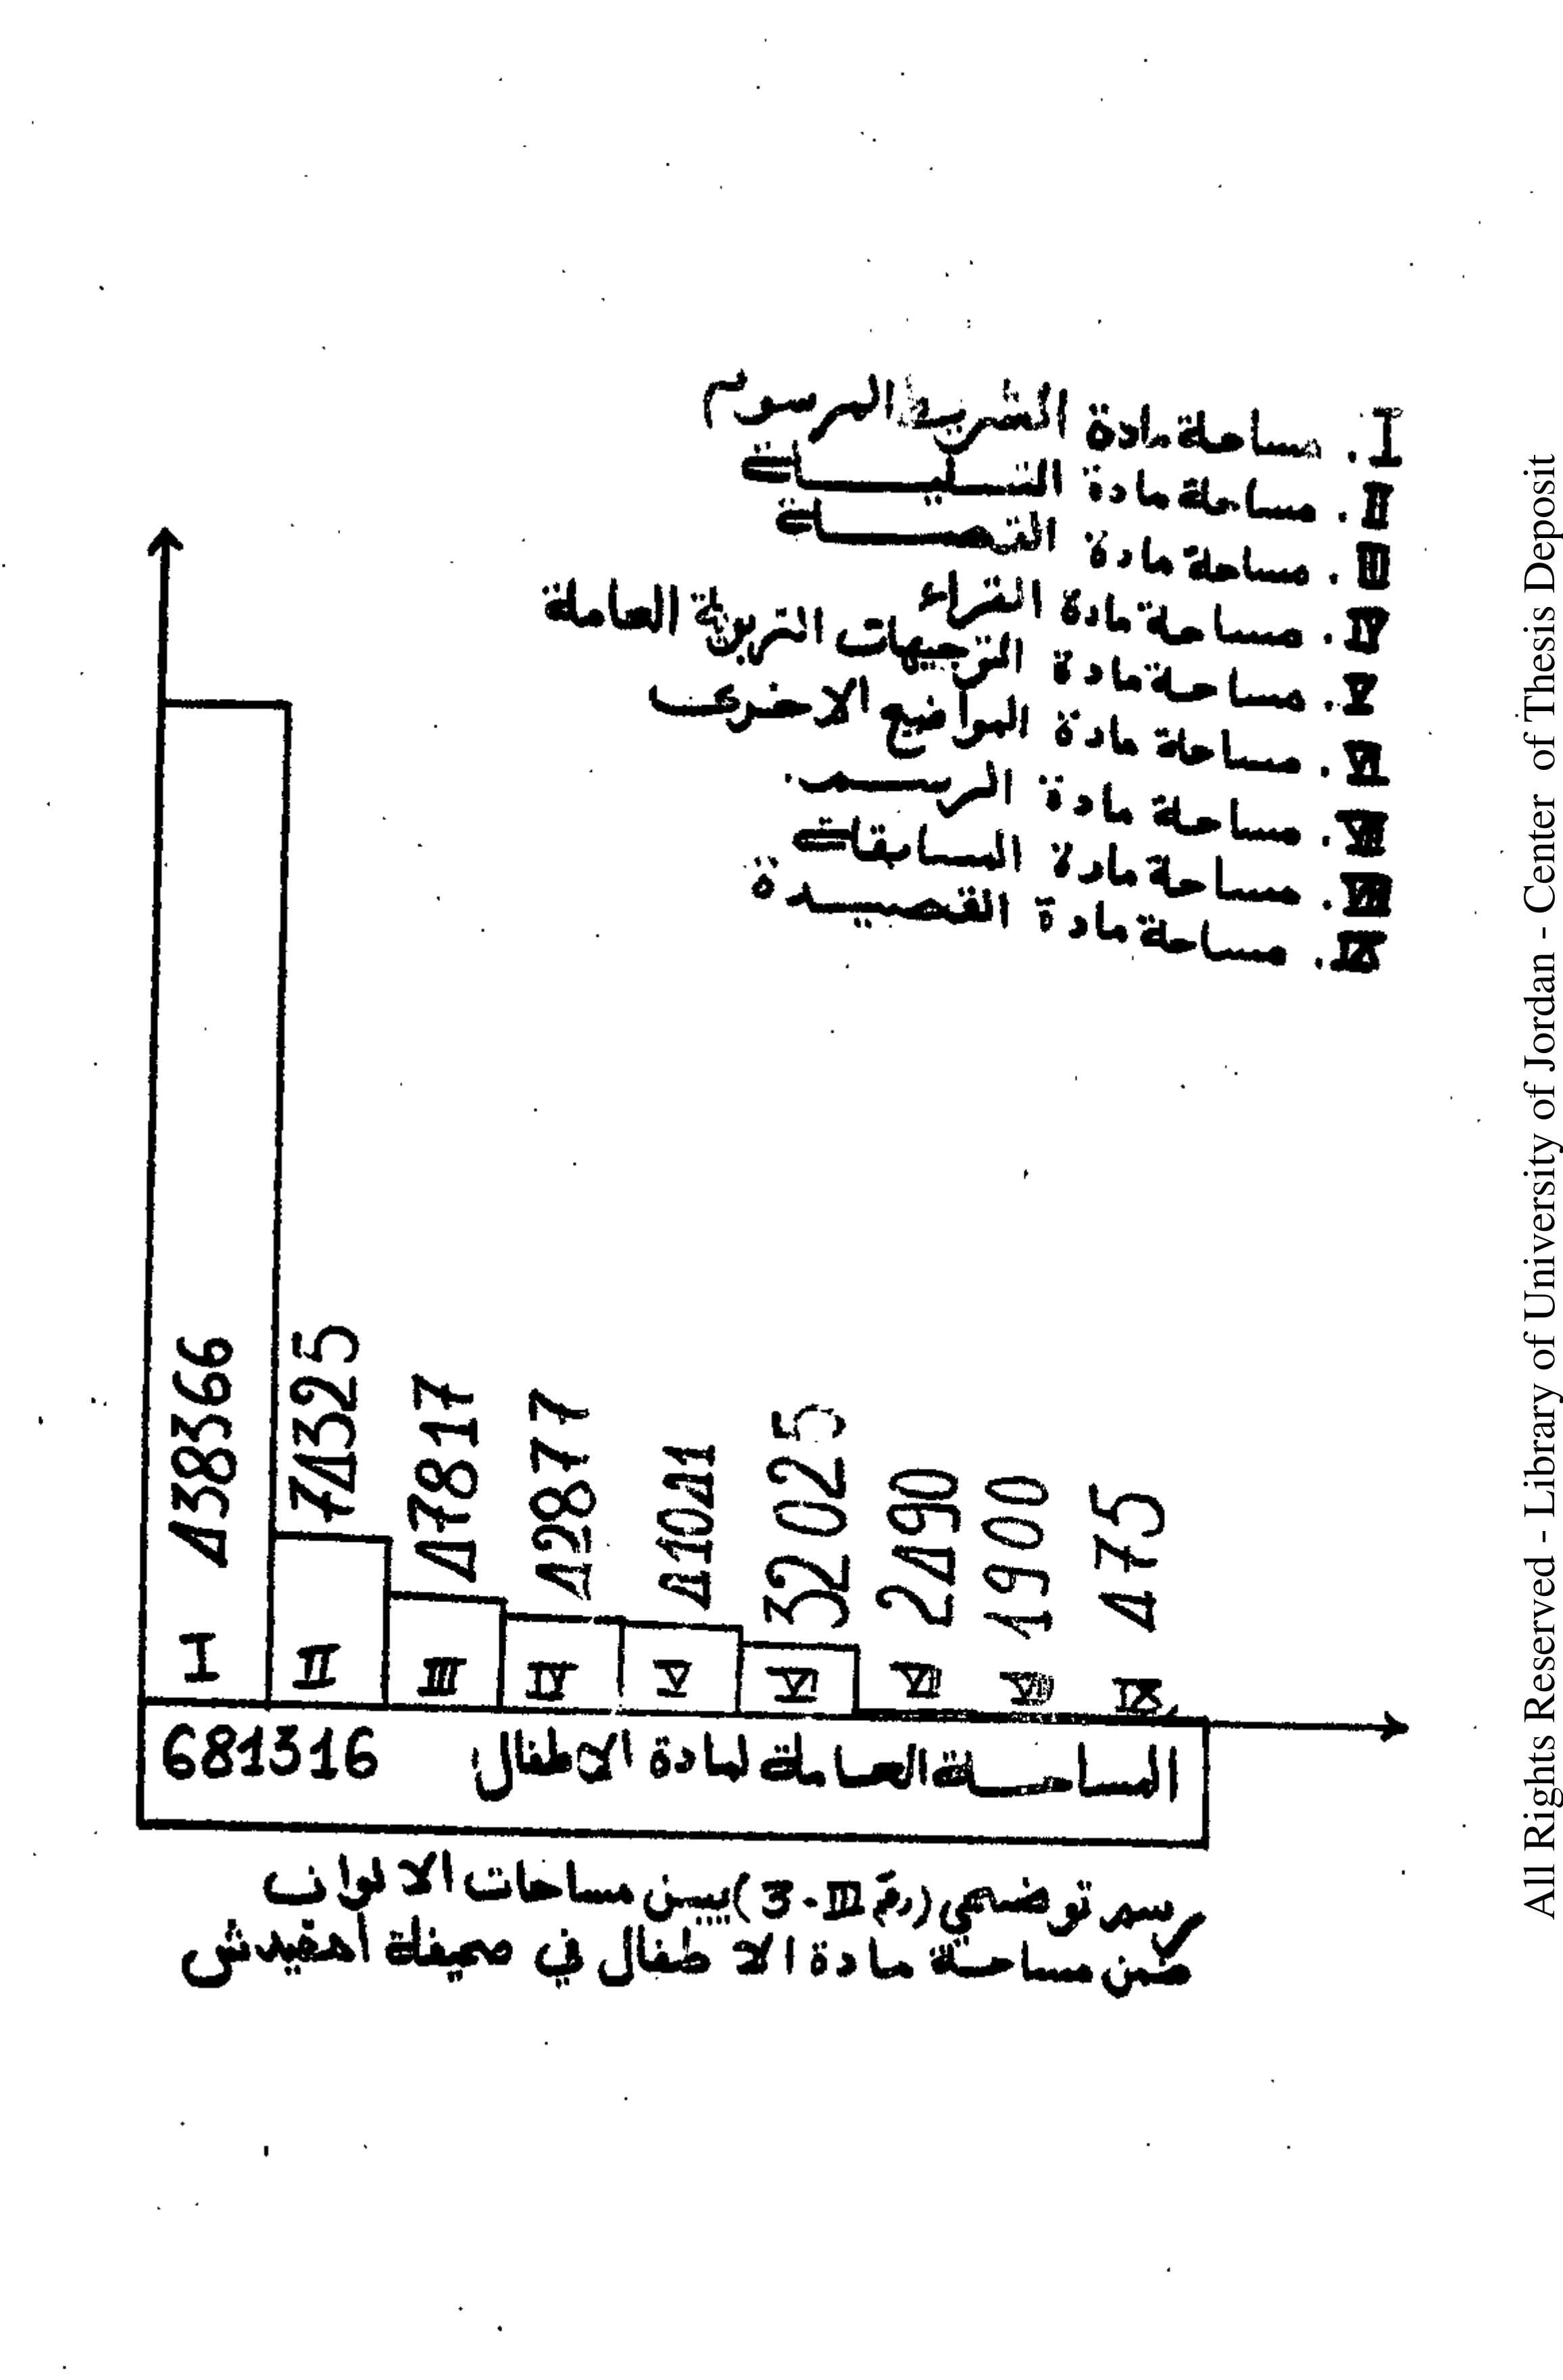 I. مساحة مادة الشريط المرسوم
II. مساحة مادة التسلية
III. مساحة مادة القصة
IV. مساحة مادة القراء
V. مساحة مادة التوجيهات التربوية العامة
VI. مساحة مادة المواضيع الاخرى
VII. مساحة مادة الرسم.
VIII. مساحة مادة المسابقة
IX. مساحة مادة القصيدة
I 438366
II 74325
III 47817
IV 42877
V 41041
VI 32025
VII 2490
VIII 1900
IX 475
المساحة العامة لمادة الاطفال 681316
رسم توضيحي (رقم III-3) يبين مساحات الالوان
ضمن مساحة مادة الاطفال في صحيفة أمقيدش
All Rights Reserved - Library of University of Jordan - Center of Thesis Deposit